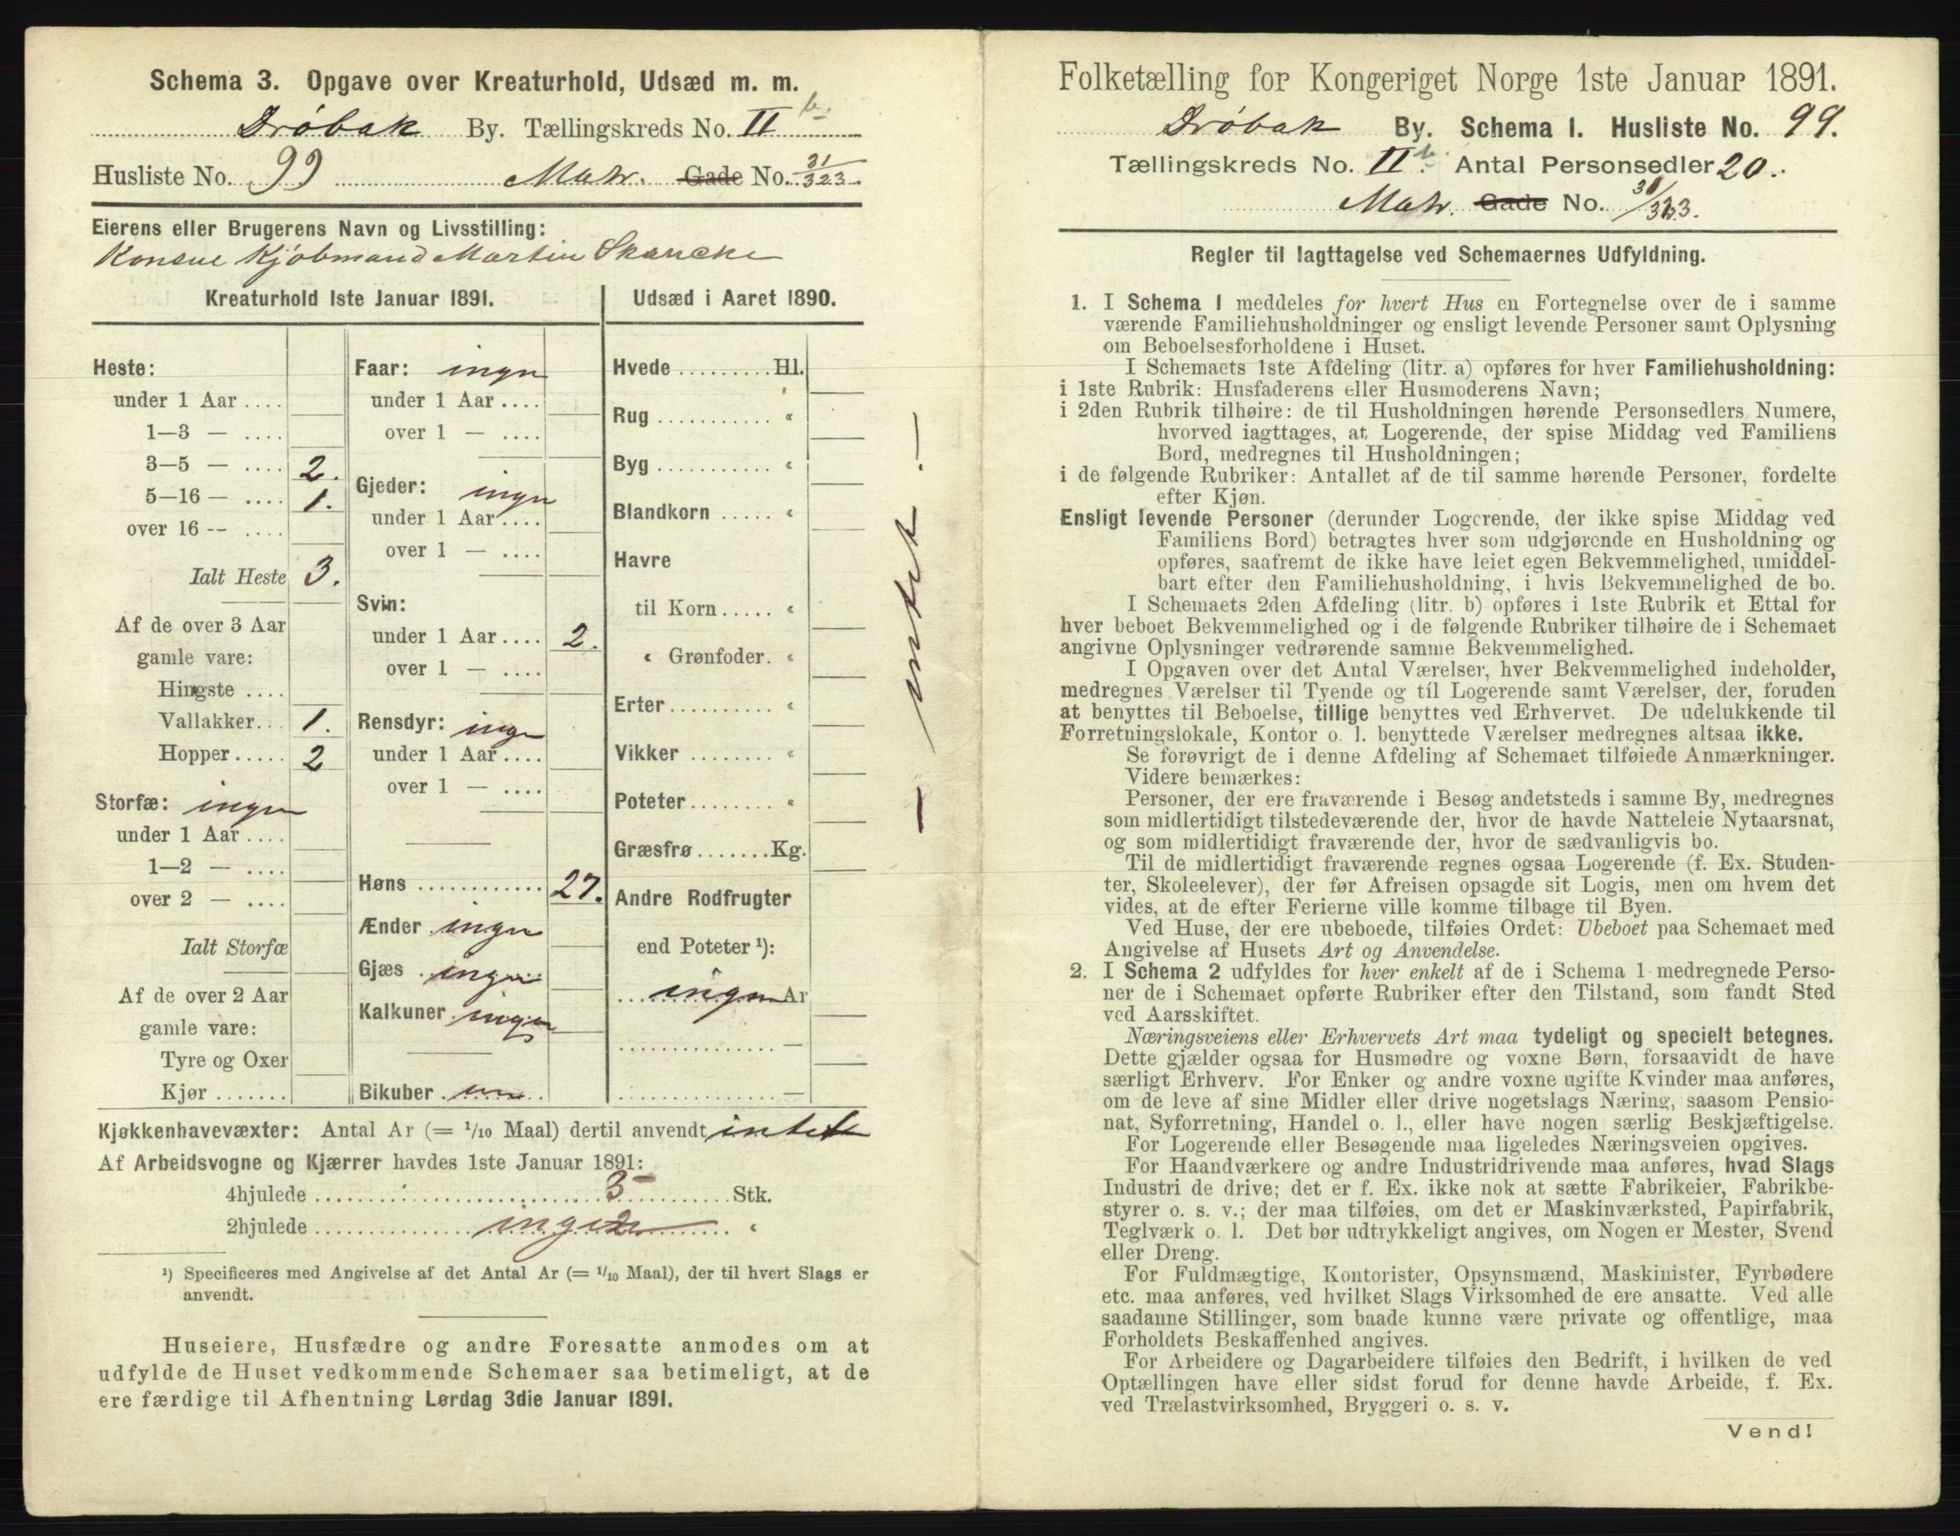 Schema 3. Opgave over Kreaturhold, Udsæd m. m.
Drøbak By. Tællingskreds No. II b.
Husliste No. 99 Matr. Gade No. 31/323
Eierens eller Brugerens Navn og Livsstilling:
Konsul Kjøbmand Martin Skancke
Kreaturhold 1ste Januar 1891.
Heste:
under 1 Aar ....
1—3 — ....
3—5 — .... 2.
5—16 — .... 1.
over 16 -- ....
Ialt Heste 3.
Af de over 3 Aar
gamle vare:
Hingste ....
Vallakker... 1.
Hopper..... 2
Storfæ: ingen
under 1 Aar ....
1—2 — ....
over 2 — ....
Ialt Storfæ
Af de over 2 Aar
gamle vare:
Tyre og Oxer
Kjør .......
Faar: ingen
under 1 Aar ....
over 1 — ....
Gjeder: ingen
under 1 Aar ....
over 1 — ....
Svin:
under 1 Aar .... 2.
over 1 — ....
Rensdyr: inge
under 1 Aar ....
over 1 — ....
Høns ............ 27.
Ænder ingen
Gjæs ingen
Kalkuner ingen
Bikuber
Udsæd i Aaret 1890.
Hvede ......... Hl.
Rug ........... «
Byg ........... «
Blandkorn ..... «
Havre
til Korn ..... «
« Grønfoder. «
Erter ......... «
Vikker ........ «
Poteter ........ «
Græsfrø ....... Kg.
Andre Rodfrugter
end Poteter ¹):
ingen Ar
—
—
— intet. —
Kjøkkenhavevæxter: Antal Ar (= 1/10 Maal) dertil anvendt intet
Af Arbeidsvogne og Kjærrer havdes 1ste Januar 1891:
4hjulede ........ 3 ........ Stk.
2hjulede ........ «
¹) Specificeres med Angivelse af det Antal Ar (= 1/10 Maal), der til hvert Slags er
anvendt.
Huseiere, Husfædre og andre Foresatte anmodes om at
udfylde de Huset vedkommende Schemaer saa betimeligt, at de
ere færdige til Afhentning Lørdag 3die Januar 1891.
Folketælling for Kongeriget Norge 1ste Januar 1891.
Drøbak By. Schema I. Husliste No. 99.
Tællingskreds No. II b. Antal Personsedler 20.
Matr. Gade No. 31/323.
Regler til Iagttagelse ved Schemaernes Udfyldning.
1. I Schema I meddeles for hvert Hus en Fortegnelse over de i samme
værende Familiehusholdninger og ensligt levende Personer samt Oplysning
om Beboelsesforholdene i Huset.
I Schemaets 1ste Afdeling (litr. a) opføres for hver Familiehusholdning:
i 1ste Rubrik: Husfaderens eller Husmoderens Navn;
i 2den Rubrik tilhøire: de til Husholdningen hørende Personsedlers Numere,
hvorved iagttages, at Logerende, der spise Middag ved Familiens
Bord, medregnes til Husholdningen;
i de følgende Rubriker: Antallet af de til samme hørende Personer, fordelte
efter Kjøn.
Ensligt levende Personer (derunder Logerende, der ikke spise Middag ved
Familiens Bord) betragtes hver som udgjørende en Husholdning og
opføres, saafremt de ikke have leiet egen Bekvemmelighed, umiddel-
bart efter den Familiehusholdning, i hvis Bekvemmelighed de bo.
I Schemaets 2den Afdeling (litr. b) opføres i 1ste Rubrik et Ettal for
hver beboet Bekvemmelighed og i de følgende Rubriker tilhøire de i Schemaet
angivne Oplysninger vedrørende samme Bekvemmelighed.
I Opgaven over det Antal Værelser, hver Bekvemmelighed indeholder,
medregnes Værelser til Tyende og til Logerende samt Værelser, der, foruden
at benyttes til Beboelse, tillige benyttes ved Erhvervet. De udelukkende til
Forretningslokale, Kontor o. l. benyttede Værelser medregnes altsaa ikke.
Se forøvrigt de i denne Afdeling af Schemaet tilføiede Anmærkninger.
Videre bemærkes:
Personer, der ere fraværende i Besøg andetsteds i samme By, medregnes
som midlertidigt tilstedeværende der, hvor de havde Natteleie Nytaarsnat,
og som midlertidigt fraværende der, hvor de sædvanligvis bo.
Til de midlertidigt fraværende regnes ogsaa Logerende (f. Ex. Studen-
ter, Skoleelever), der før Afreisen opsagde sit Logis, men om hvem det
vides, at de efter Ferierne ville komme tilbage til Byen.
Ved Huse, der ere ubeboede, tilføies Ordet: Ubeboet paa Schemaet med
Angivelse af Husets Art og Anvendelse.
2. I Schema 2 udfyldes for hver enkelt af de i Schema 1 medregnede Perso-
ner de i Schemaet opførte Rubriker efter den Tilstand, som fandt Sted
ved Aarsskiftet.
Næringsveiens eller Erhvervets Art maa tydeligt og specielt betegnes.
Dette gjælder ogsaa for Husmødre og voxne Børn, forsaavidt de have
særligt Erhverv. For Enker og andre voxne ugifte Kvinder maa anføres,
om de leve af sine Midler eller drive nogetslags Næring, saasom Pensio-
nat, Syforretning, Handel o. l., eller have nogen særlig Beskjæftigelse.
For Logerende eller Besøgende maa ligeledes Næringsveien opgives.
For Haandværkere og andre Industridrivende maa anføres, hvad Slags
Industri de drive; det er f. Ex. ikke nok at sætte Fabrikeier, Fabrikbe-
styrer o. s. v.; der maa tilføies, om det er Maskinværksted, Papirfabrik,
Teglværk o. l. Det bør udtrykkeligt angives, om Nogen er Mester, Svend
eller Dreng.
For Fuldmægtige, Kontorister, Opsynsmænd, Maskinister, Fyrbødere
etc. maa anføres, ved hvilket Slags Virksomhed de ere ansatte. Ved alle
saadanne Stillinger, som baade kunne være private og offentlige, maa
Forholdets Beskaffenhed angives.
For Arbeidere og Dagarbeidere tilføies den Bedrift, i hvilken de ved
Optællingen have eller sidst forud for denne havde Arbeide, f. Ex.
ved Trælastvirksomhed, Bryggeri o. s. v.
Vend!